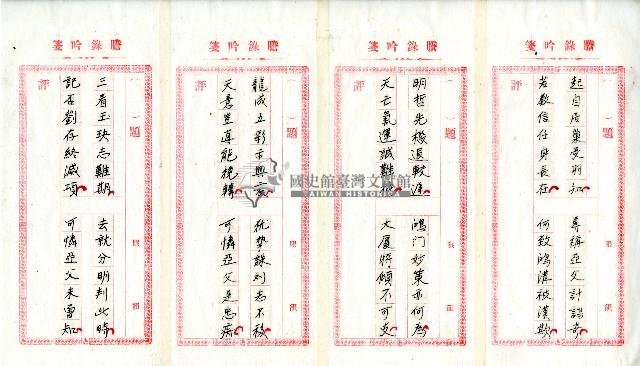 謄錄吟箋
題
起自居巢受羽知
尊稱亞父計謀奇
若教信任與長在
何致鴻溝被漢欺
謄錄吟箋
題
評
明哲先機退較遲
鴻门妙策亦何為
天亡氣運誠難
大廈將傾不可支
謄錄吟箋
題
龍成五彩
扰势謀刘志不移
天意豈真能挽轉
可憐亞父是愚痴
謄錄吟箋
題
評
三看玉玦志難期
去就分明判此時
記否劉存終滅項
可憐亞父未曾知
國史館臺灣文獻館
TAIWAN HISTORICA